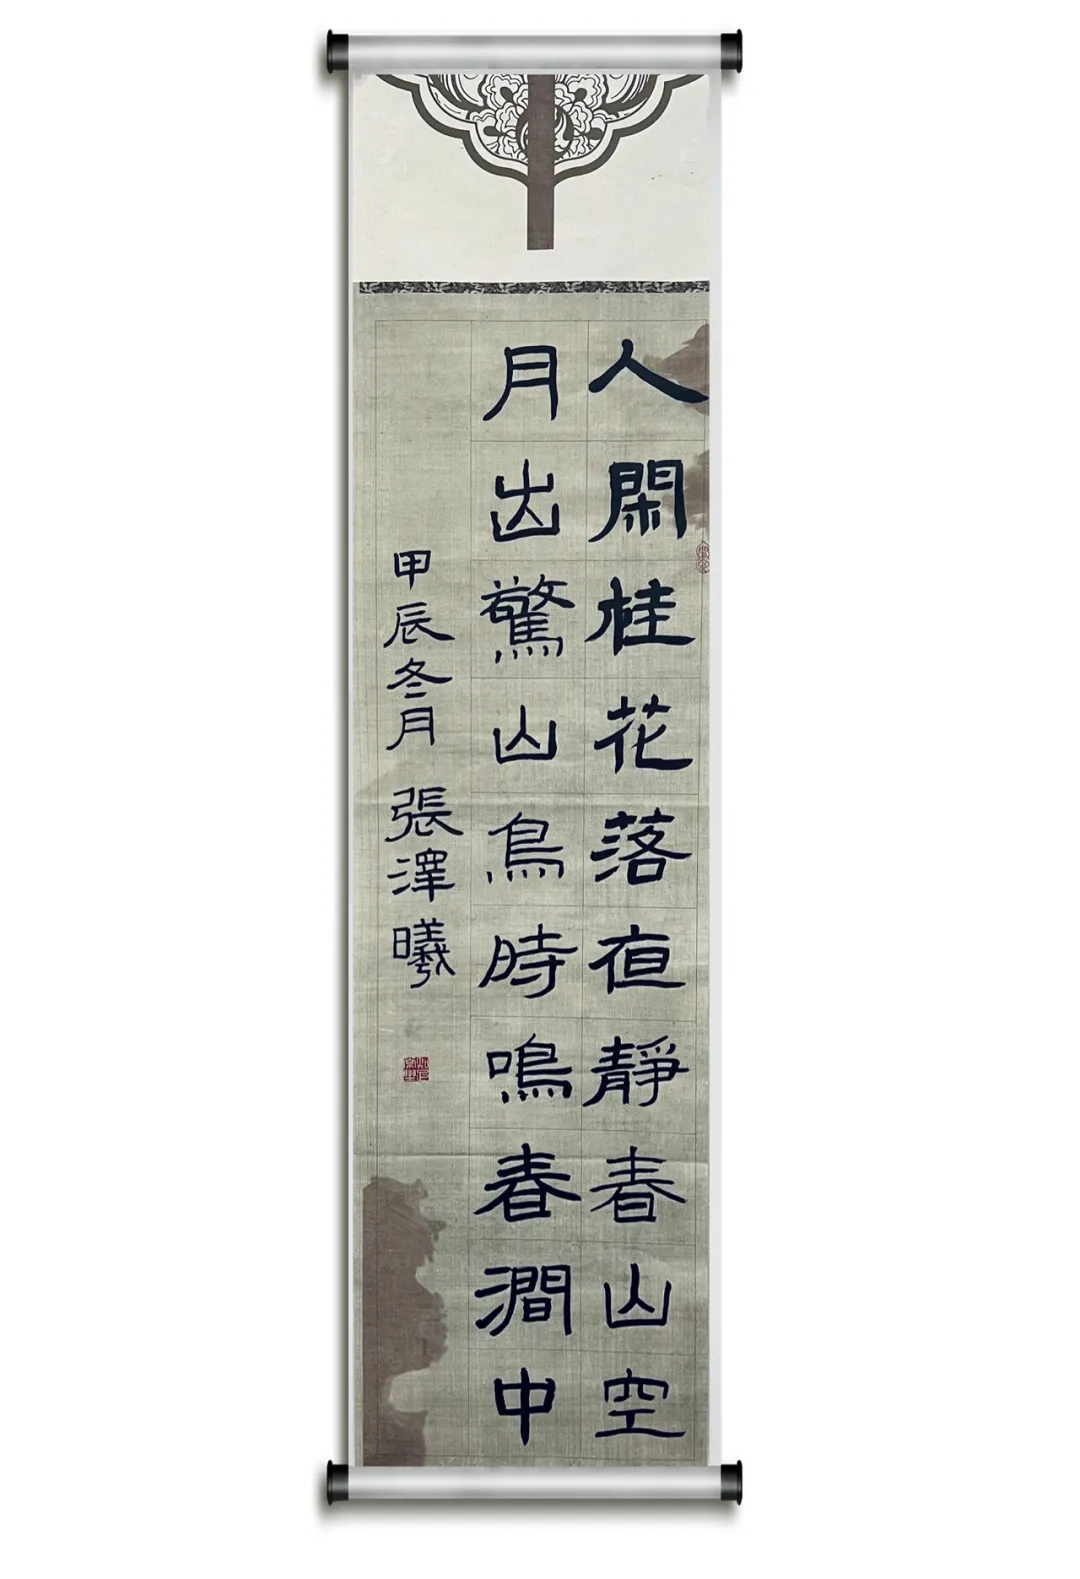 人閑桂花落夜靜春山空
月出驚山鳥時鳴春澗中
甲辰冬月 張澤曦